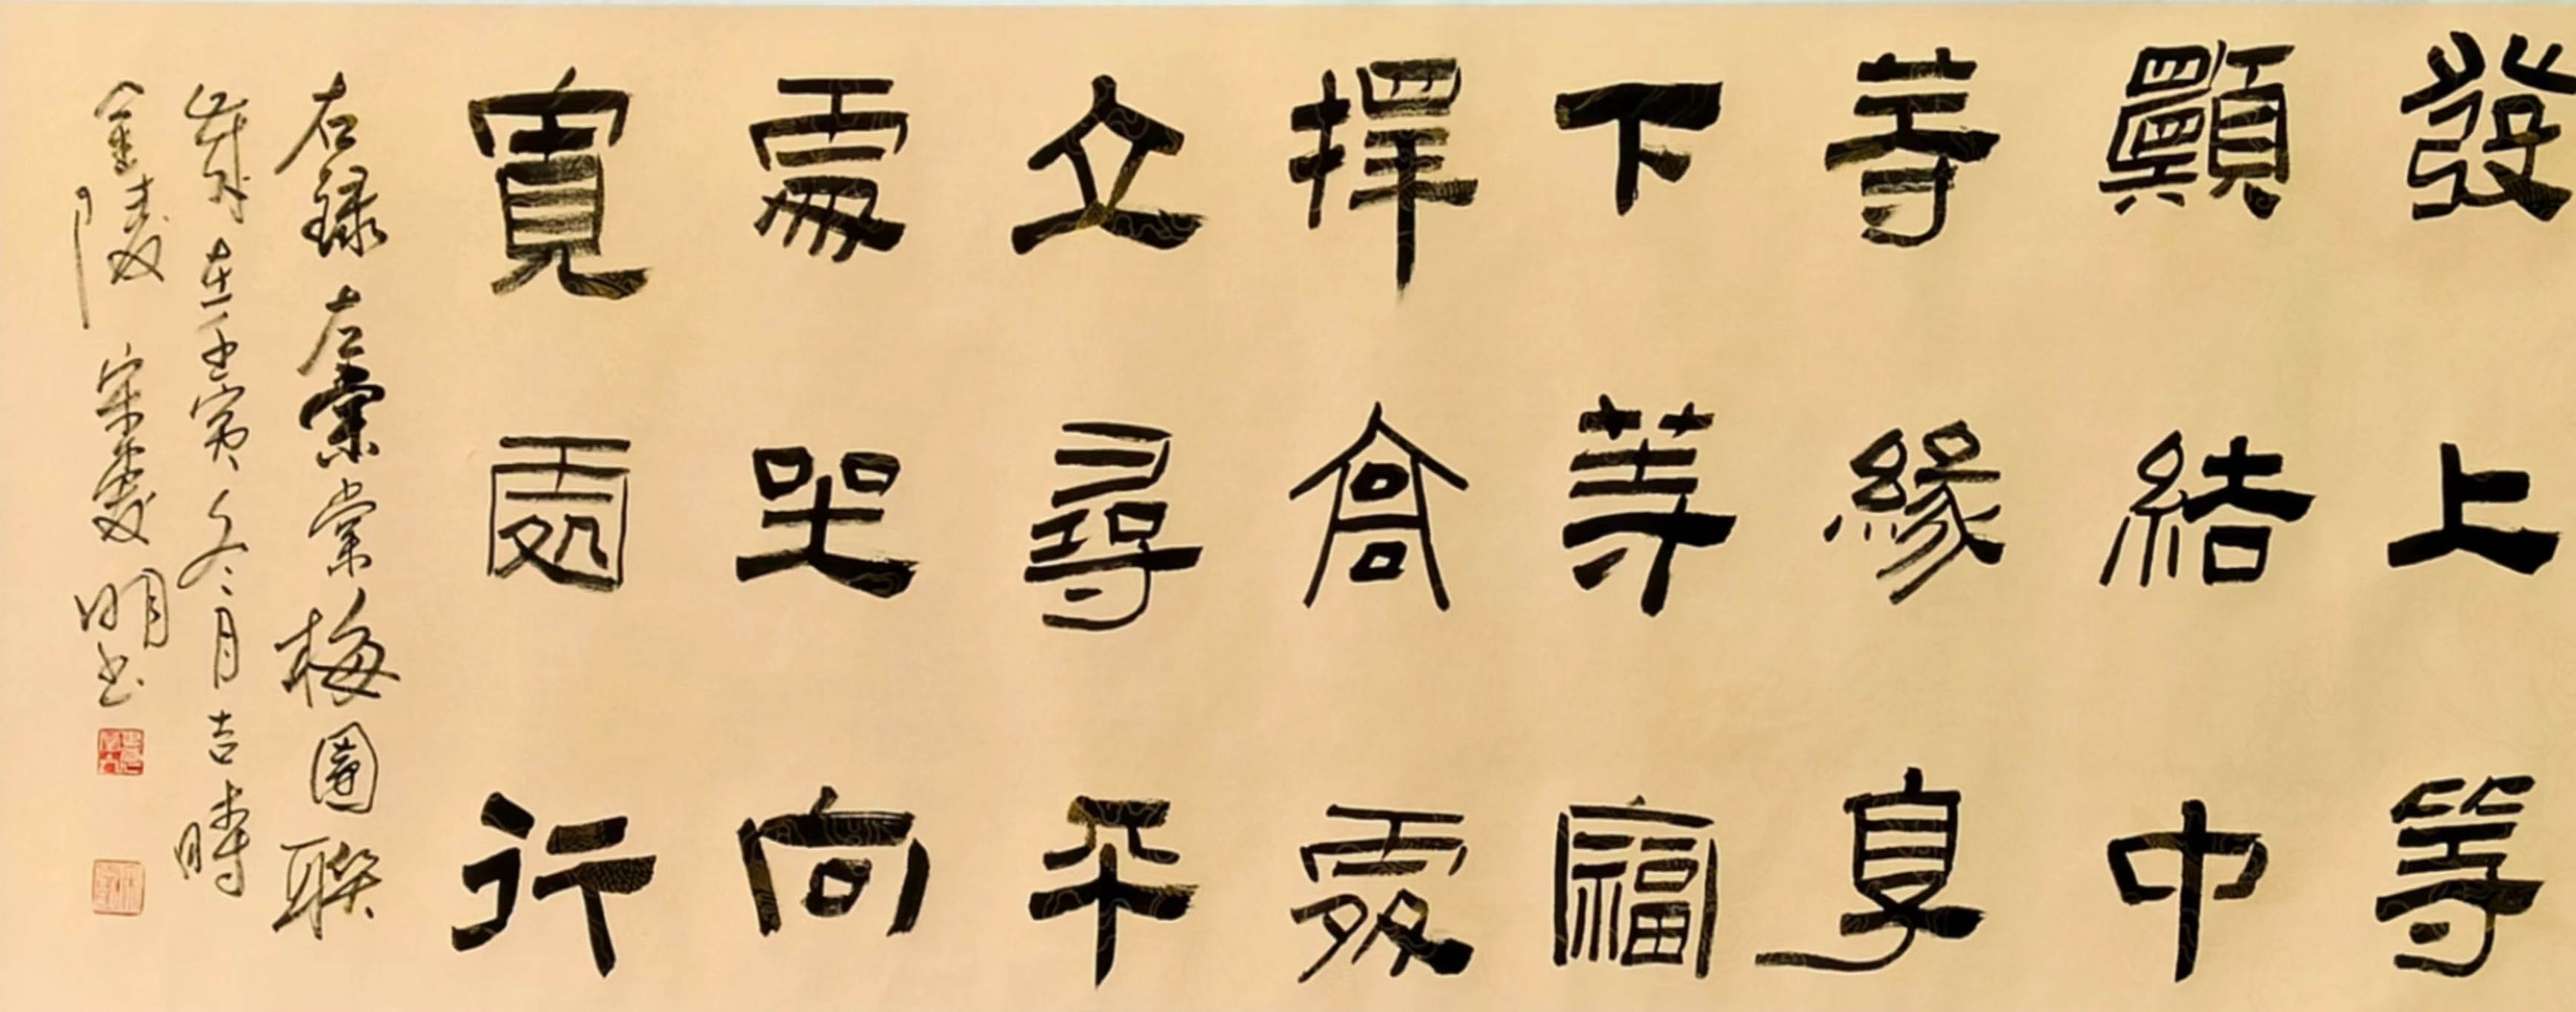 發上等
願結中
等緣享
下等福
擇高處
立尋平
處坐向
寬處行
右錄左宗棠梅園聯
歲在壬寅冬月吉時
金陵宋愛明書